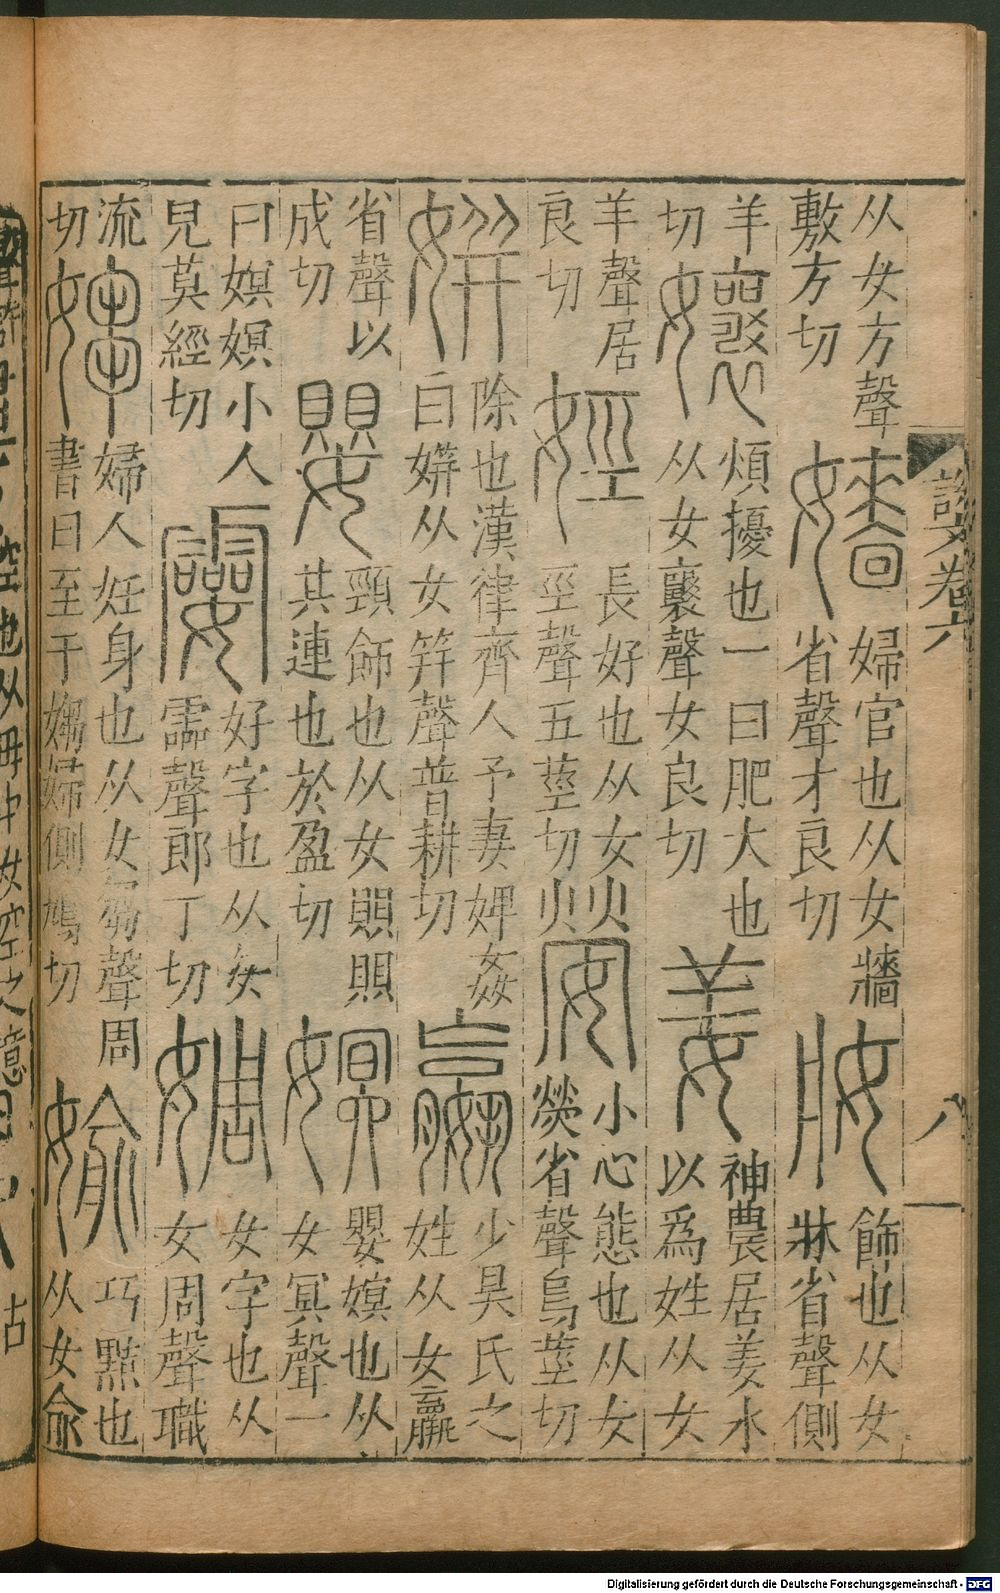 說文卷六
八
从女方聲
敷方切
嬙
婦官也从女牆
省聲才良切
妝
飾也从女
牀省聲側
羊
切
孃
煩擾也一曰肥大也
从女襄聲女良切
姜
神農居姜水
以爲姓从女
羊聲居
良切
娙
長好也从女
巠聲五莖切
嫈
小心態也从女
熒省聲烏莖切
姘
除也漢律齊人予妻婢姦
白姘从女笄聲普耕切
嬴
少昊氏之
姓从女𣎆
省聲以
成切
嬰
頸飾也从女賏賏
其連也於盈切
嫇
嬰嫇也从
女冥聲一
曰嫇嫇小人
見莫經切
孁
好字也从女
霝聲郎丁切
婤
女字也从
女周聲職
流
切
媰
婦人妊身也从女芻聲周
書曰至于媰婦側鳩切
媮
巧黠也
从女俞
Digitalisierung gefördert durch die Deutsche Forschungsgemeinschaft - DFG